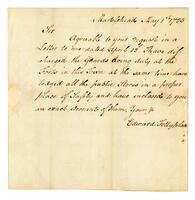 Marblehead May 1st 1783
Sir
Agreable to your request in a
Letter to me dated April 12th I have dis
charged the Guards doing duty at the
Forts in this Town at the same time have
lodged all the public Stores in a proper
place of Safety and have inclosed to you
an exact Accounts of them, Your,
Edward Fettyplace